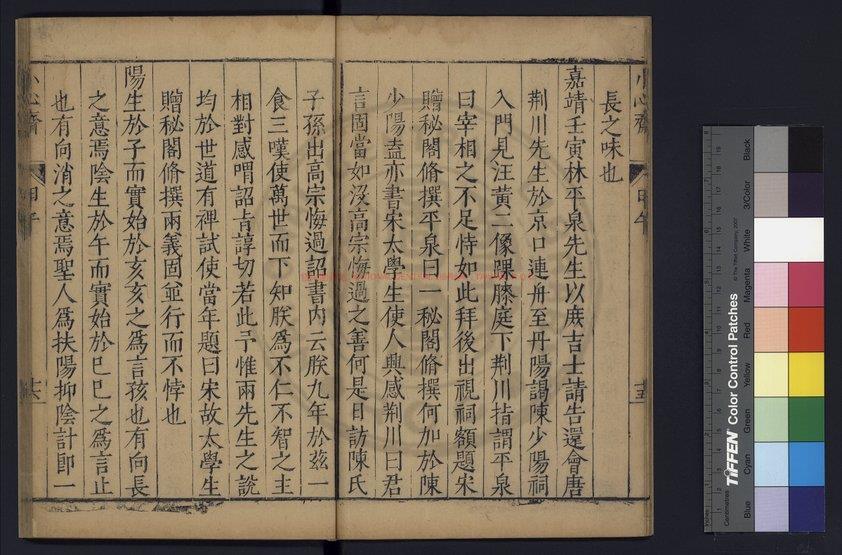 小心齋
甲午
十五
長之味也
嘉靖壬寅林平泉先生以庶吉士請告還會唐
荆川先生於京口連舟至丹陽謁陳少陽祠
入門見汪黃二像踝膝庭下荆川指謂平泉
曰宰相之不足恃如此拜後出視祠額題宋
贈秘閣脩撰平泉曰一秘閣脩撰何加於陳
少陽盍亦書宋太學生使人興感荆川曰君
言固當如沒高宗悔過之善何是日訪陳氏
子孫出高宗悔過詔書内云朕九年於茲一
食三嘆使萬世而下知朕爲不仁不智之主
相對感喟詔㫖諄切若此予惟兩先生之說
均於世道有裨試使當年題曰宋故太學生
贈秘閣脩撰兩義固並行而不悖也
陽生於子而實始於亥亥之爲言孩也有向長
之意焉陰生於午而實始於巳巳之爲言止
也有向消之意焉聖人爲扶陽抑陰計卽一
小心齋
甲午
十六
TIFFEN Color Control Patches
© The Tiffen Company, 2007
Centimetres
Inches
Blue
Cyan
Green
Yellow
Red
Magenta
White
3/Color
Black